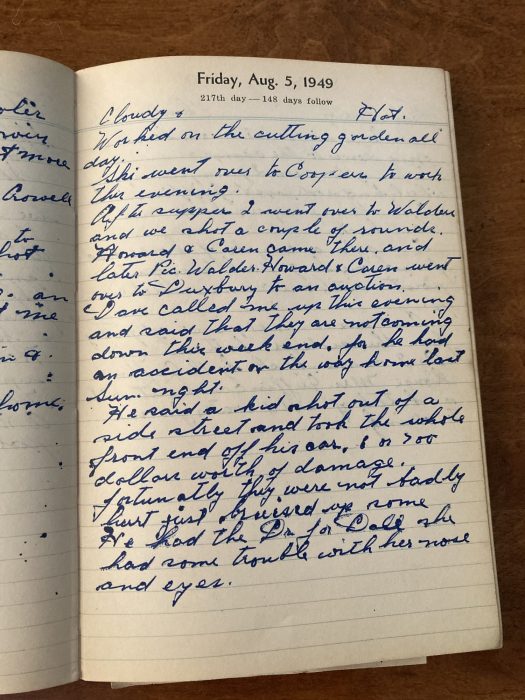 oler
t more
Crowell
to
hot
an
me
in &
home.
Friday, Aug. 5, 1949
217th day — 148 days follow
Cloudy & Hot.
Worked on the cutting gorden all
day.
Ski went over to Coopers to work
this evening.
After supper I went over to Walden
and we shot a couple of rounds.
Howard & Caren came there, and
later Pic. Walden. Howard & Caren went
over to Duxbury to an auction.
Dave called me up this evening
and said that they are not coming
down this week end, for he had
an accident on the way home last
Sun. night.
He said a kid shot out of a
side street and took the whole
front end off his car. 6 or 700
dollars worth of damage.
fortunatly they were not badly
hurt just bruised up some
He had the Dr. for she
had some trouble with her nose
and eyes.